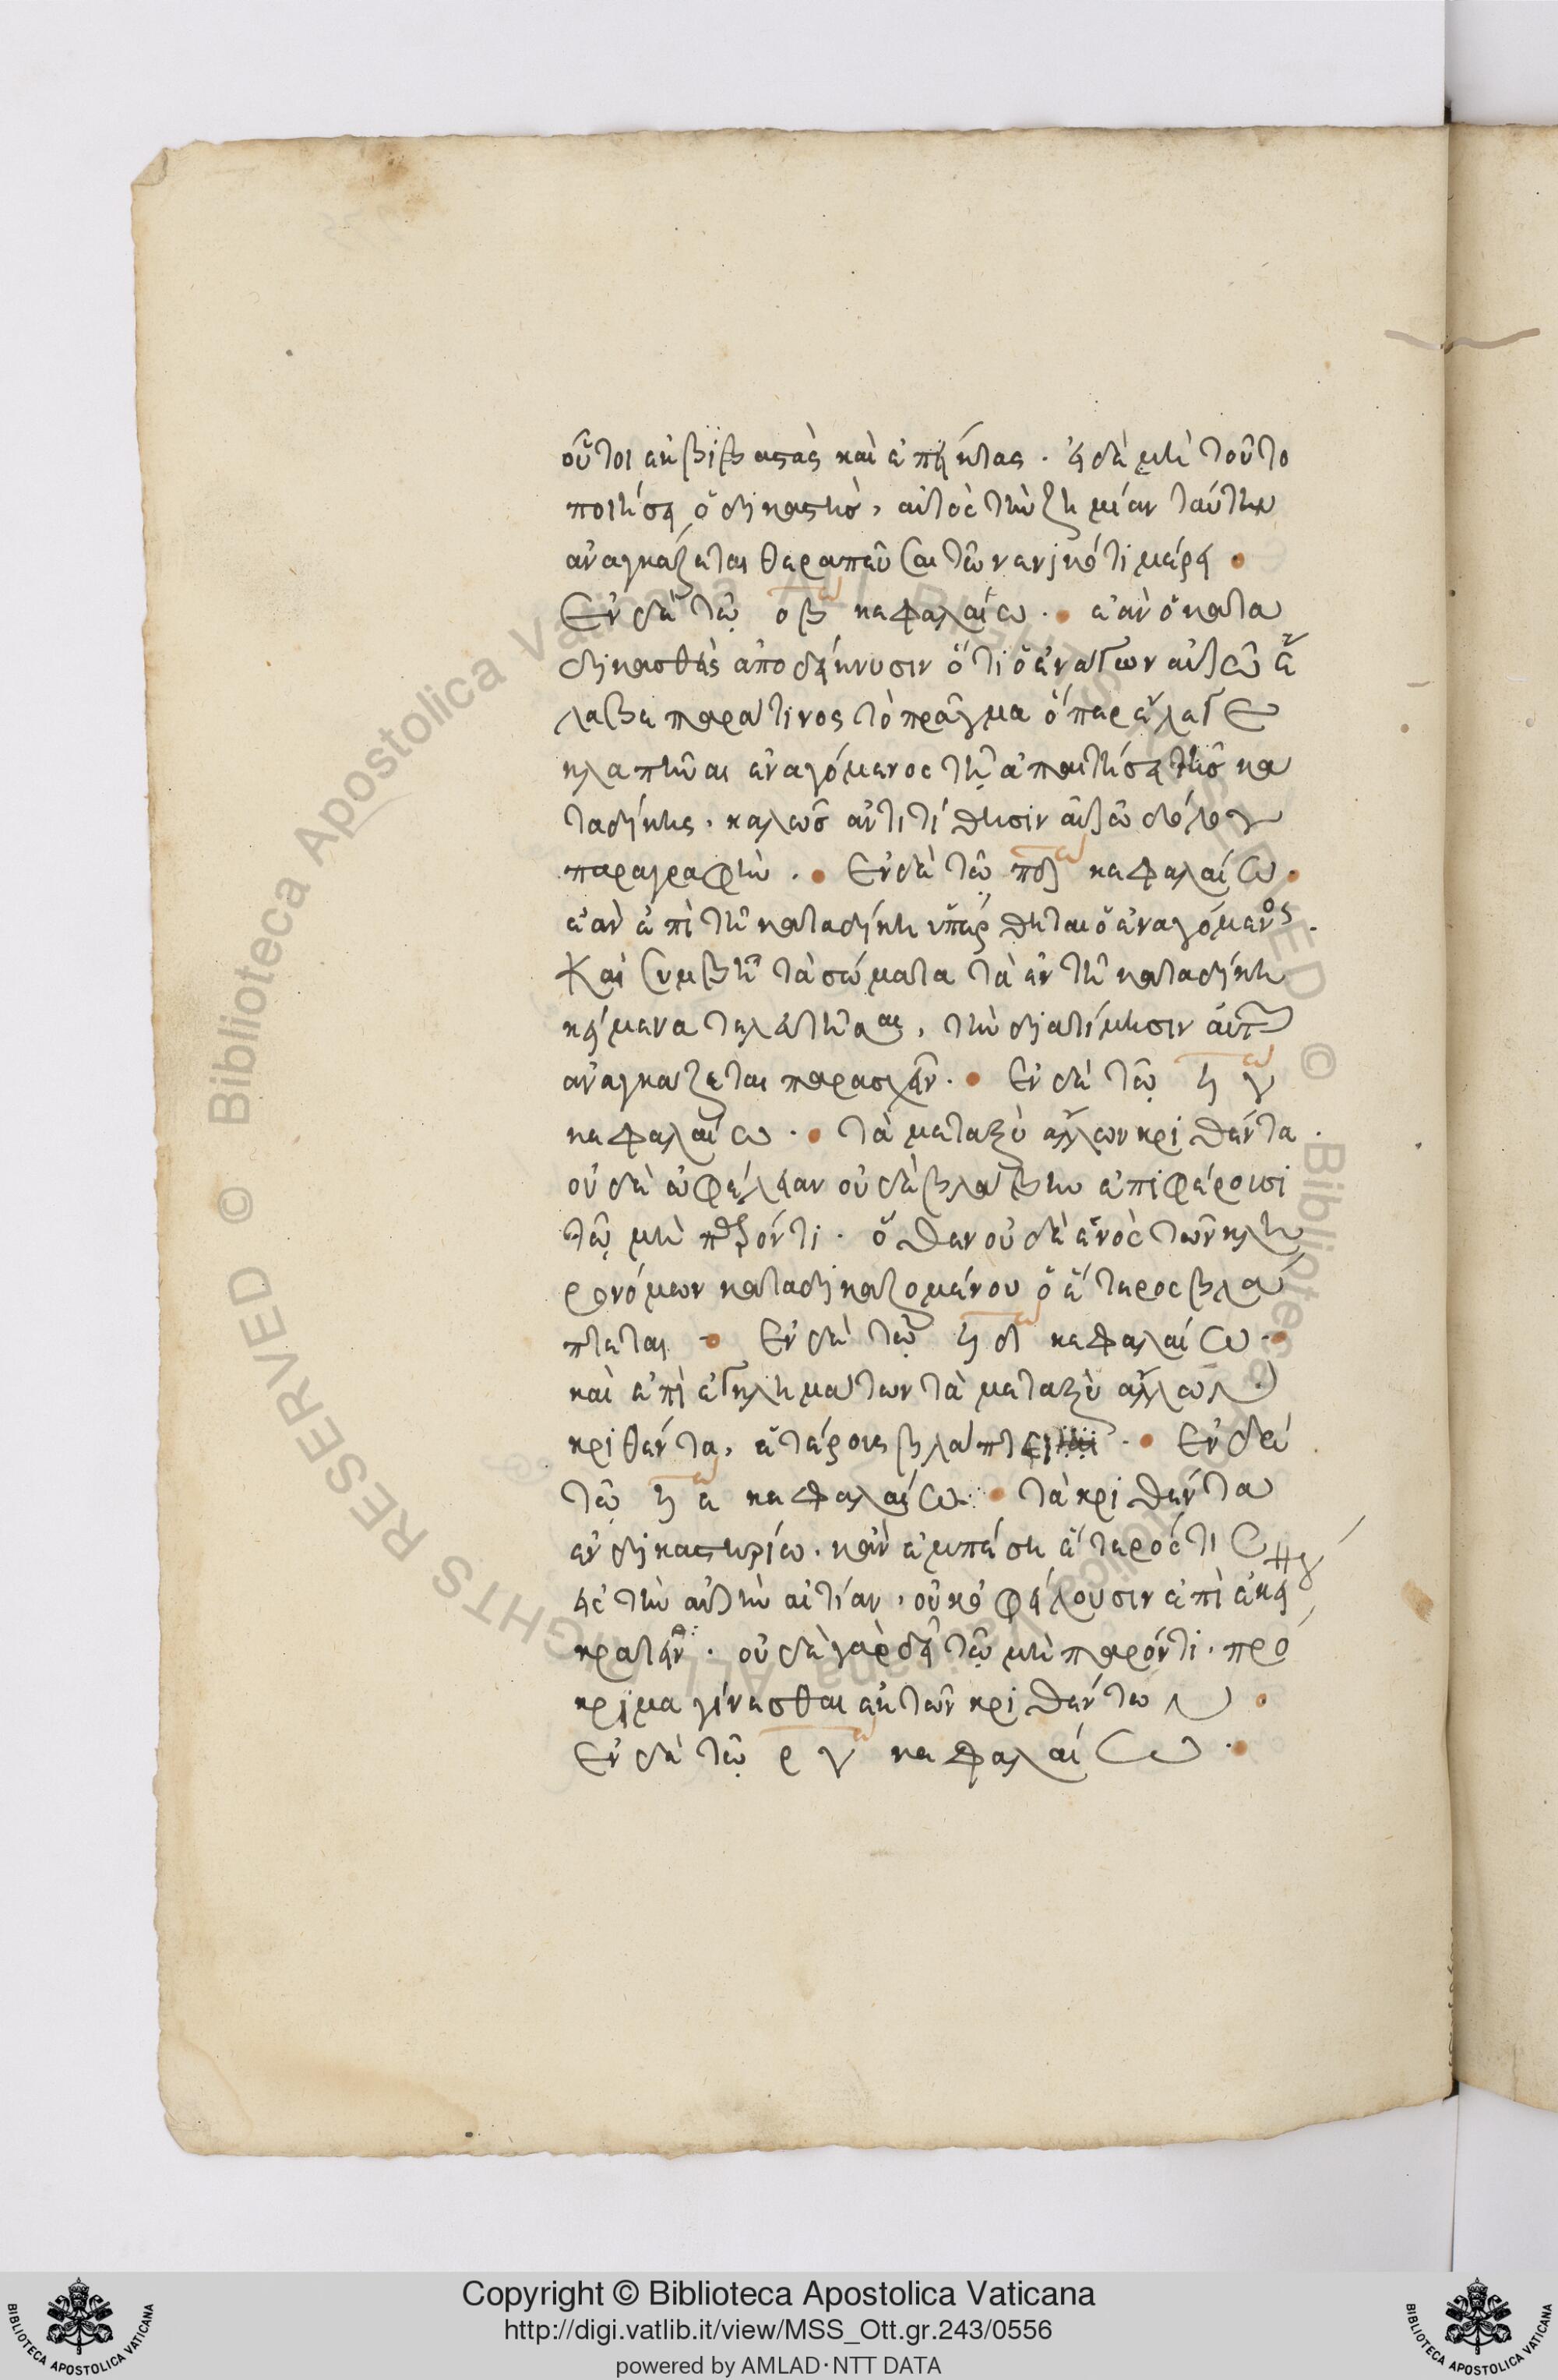 οὗτοι ἐκβιβαστὰς καὶ ἐπείκτας. εἰ δὲ μὴ τοῦτο
ποιήσει ὁ δικαστὴς, αὐτὸς τὴν ζημίαν ταύτην
ἀναγκάζεται θεραπεῦσαι τῶ νενικηκότι μέρει
Ἐν δὲ τῶ οβω κεφαλαίω. ἐὰν ὁ κατα
δικασθεὶς ἀποδείκνυσιν ὅτι ὁ ἐνάγων αὐτῶ ἔ
λαβε παρά τινος τὸ πρᾶγμα ὅπερ ἔλεγε
κλαπῆναι ἐναγόμενος τῆ ἀπαιτήσει τῆς κα
ταδίκης. καλῶς ἀντιτίθησιν αὐτῶ δόλου
παραγραφὴν. Ἐν δὲ τῶ πδω κεφαλαίω.
ἐὰν ἐπὶ τῆ καταδίκη ὑπέρθηται ὁ ἐναγόμενος.
Καὶ συμβῆ τὰ σώματα τὰ ἐν τῆ καταδίκη
κείμενα τελευτῆσαι, τὴν διατίμησιν αὐτῶν
ἀναγκάζεται παρασχεῖν. Ἐν δὲ τῶ ϟγω
κεφαλαίω. τὰ μεταξὺ ἄλλων κριθέντα.
οὐδὲ ὠφέλειαν οὐδὲ βλάβην ἐπιφέρουσι
τῶ μὴ παρόντι. ὅθεν οὐδὲ ἑνὸς τῶν κλη
ρονόμων καταδικαζομένου ὁ ἕτερος βλά
πτεται Ἐν δὲ τῶ ϟδω κεφαλαίω
καὶ ἐπὶ ἐγκλημάτων τὰ μεταξὺ ἄλλων
κριθέντα, ἑτέροις βλάπτει. Ἐν δὲ
τῶ ϟεω κεφαλαίω. τὰ κριθέντα
ἐν δικαστηρίω. κἂν ἐμπέση ἕτερός τις
εἰς τὴν αὐτὴν αἰτίαν, οὐκ ὀφείλουσιν ἐπὶ ἐκεί
κρατεῖν. οὐδὲ γὰρ δεῖ τῶ μὴ παρόντι. πρό
κριμα γίνεσθαι ἐκ τῶν κριθέντων
Ἐν δὲ τῶ ργω κεφαλαίω.
Copyright © Biblioteca Apostolica Vaticana
http://digi.vatlib.it/view/MSS_Ott.gr.243/0556
powered by AMLAD·NTT DATA